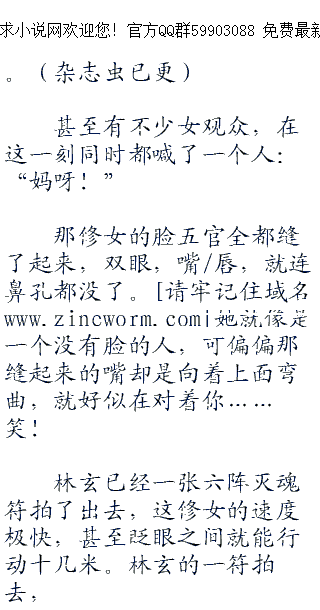 求小说网欢迎您！官方QQ群59903088 免费最新
。（杂志虫已更）
甚至有不少女观众，在
这一刻同时都喊了一个人：
“妈呀！”
那修女的脸五官全都缝
了起来，双眼，嘴/唇，就连
鼻孔都没了。[请牢记住域名
www.zincworm.com|她就像是
一个没有脸的人，可偏偏那
缝起来的嘴却是向着上面弯
曲，就好似在对着你……
笑！
林玄已经一张六阵灭魂
符拍了出去，这修女的速度
极快，甚至眨眼之间就能行
动十几米。林玄的一符拍
去，